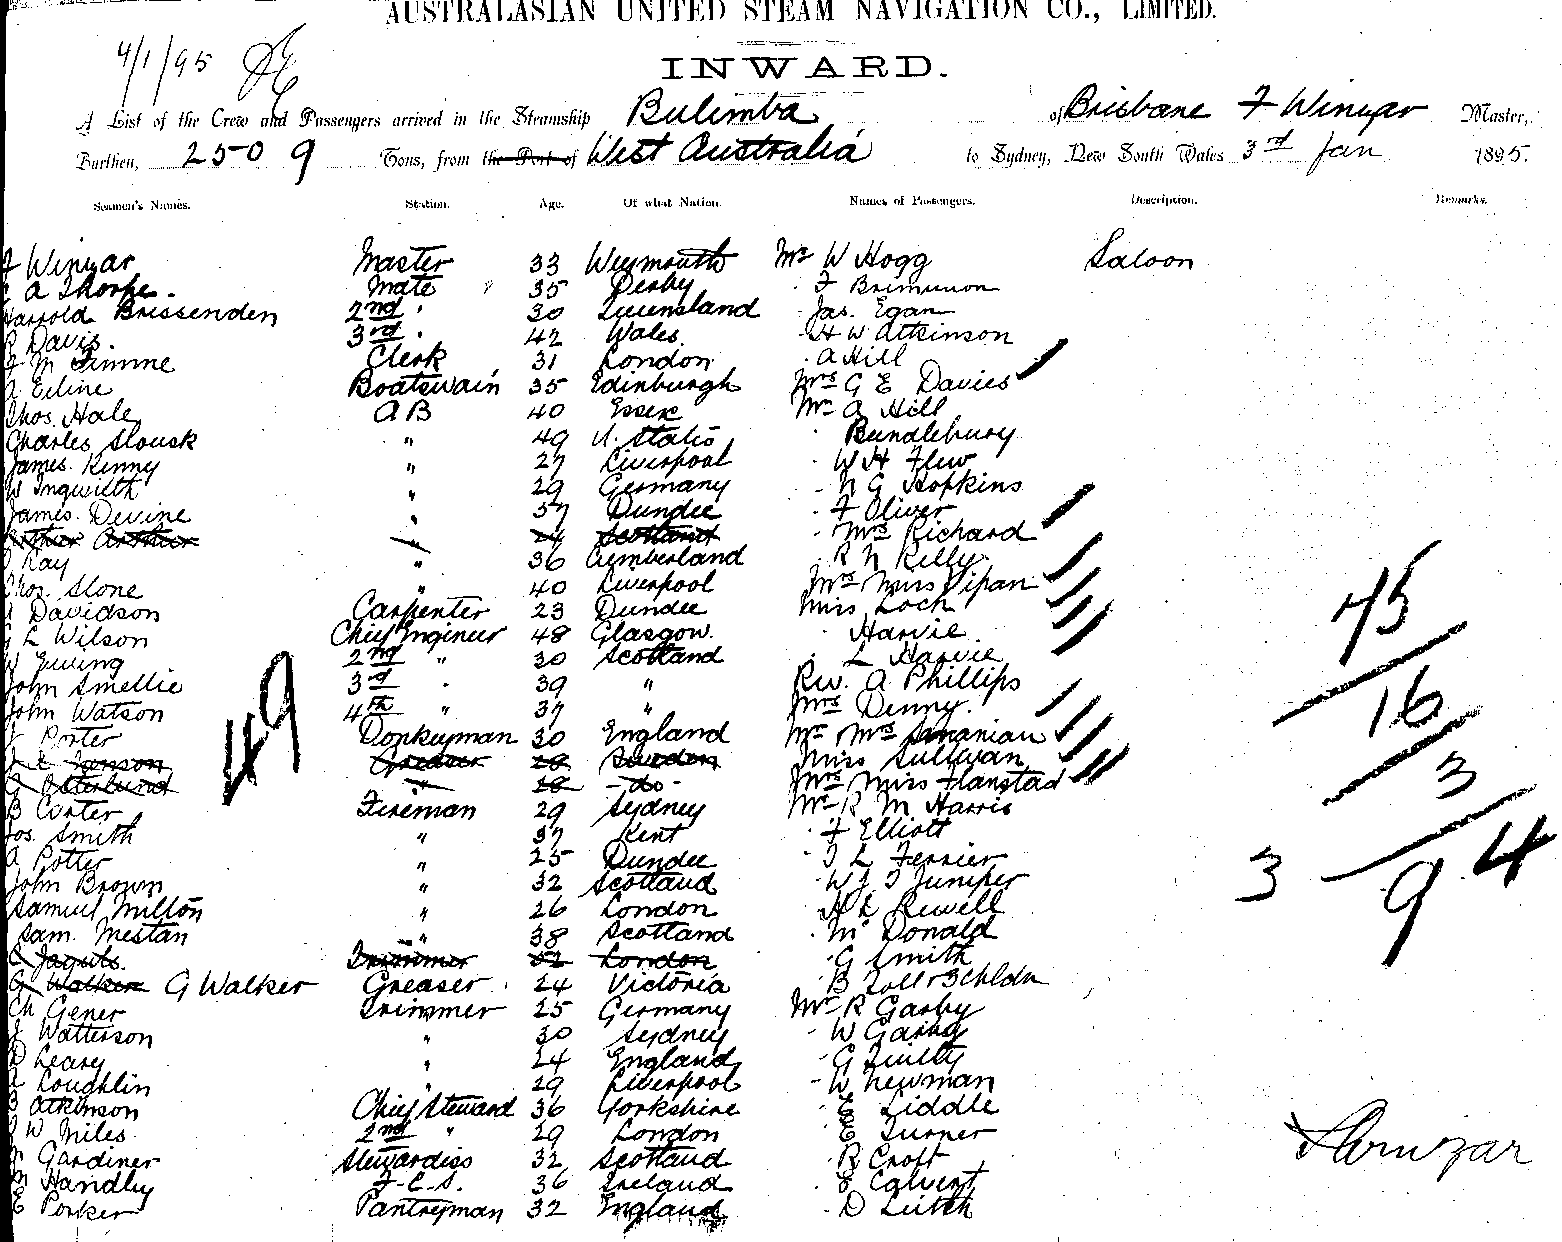 AUSTRALASIAN UNITED STEAM NAVIGATION CO., LIMITED.
4/1/95
INWARD.
A List of the Crew and Passengers arrived in the Steamship Bulimba of Brisbane F Winyar Master,
Burthen, 2509 Tons, from the Port of West Australia to Sydney, New South Wales 3rd Jan 1895.
Seamen's Names. Station. Age. Of what Nation. Names of Passengers. Description. Remarks.
F Winyar Master 33 Weymouth Mr W Hogg Saloon
A Thorpe. Mate 35 Derby " F
Harrold Brissenden 2nd " 30 Queensland " Jas. Egan
Davis. 3rd " 42 Wales. " H W Atkinson
M Timme Clerk 31 London " A Hill
Boatswain 35 Edinburgh Mrs G E Davies
Thos. Hale A B 40 Essex Mr A Hill
Charles " 49 U. States " Bundlebury
James. Kenny " 27 Liverpool " W H Flew
W " 29 Germany " N G Hopkins
James. Devine " 37 Dundee " F Oliver
Arthur " 24 Scotland " Mrs Richard
Ray " 36 Cumberland " R N Kelly
Thos. Stone " 40 Liverpool Mrs Miss Vipan
Davidson Carpenter 23 Dundee Miss Loch
L Wilson Chief Engineer 48 Glasgow. " Harvie
W Ewing 2nd " 30 Scotland " L Harvie
John Smellie 3rd " 39 " Rev. A Phillips
John Watson 4th " 37 " Mrs Denny.
Porter Donkeyman 30 England Mr Mrs
Janson Greaser 28 Sweden Miss Sullivan
Osterlund " 28 - do - Mrs Miss Hanstad
B Carter Fireman 29 Sydney Mr R M Harris
Jos. Smith " 37 Kent " F Elliott
A Potter " 25 Dundee " T L Ferrier
John Brown " 32 Scotland " W J T Juniper
Samuel Milton " 26 London " H L Sewell
Sam. Mestan " 38 Scotland " McDonald
Trimmer 32 London " G Smith
G Walker G Walker Greaser 24 Victoria " B
Ch Gener Trimmer 25 Germany Mr R Garby
J Watterson " 30 Sydney " W Garby
D Leary " 24 England " G Quilty
Loughlin " 29 Liverpool " W Newman
Atkinson Chief Steward 36 Yorkshire " E Liddle
W Miles 2nd " 29 London " E Turner
Gardiner Stewardess 32 Scotland " R Croft
M Handley F.C.S. 36 Ireland " E Calvert
E Porker Pantryman 32 England " D Leitch
49
45
16
3
3 9 4